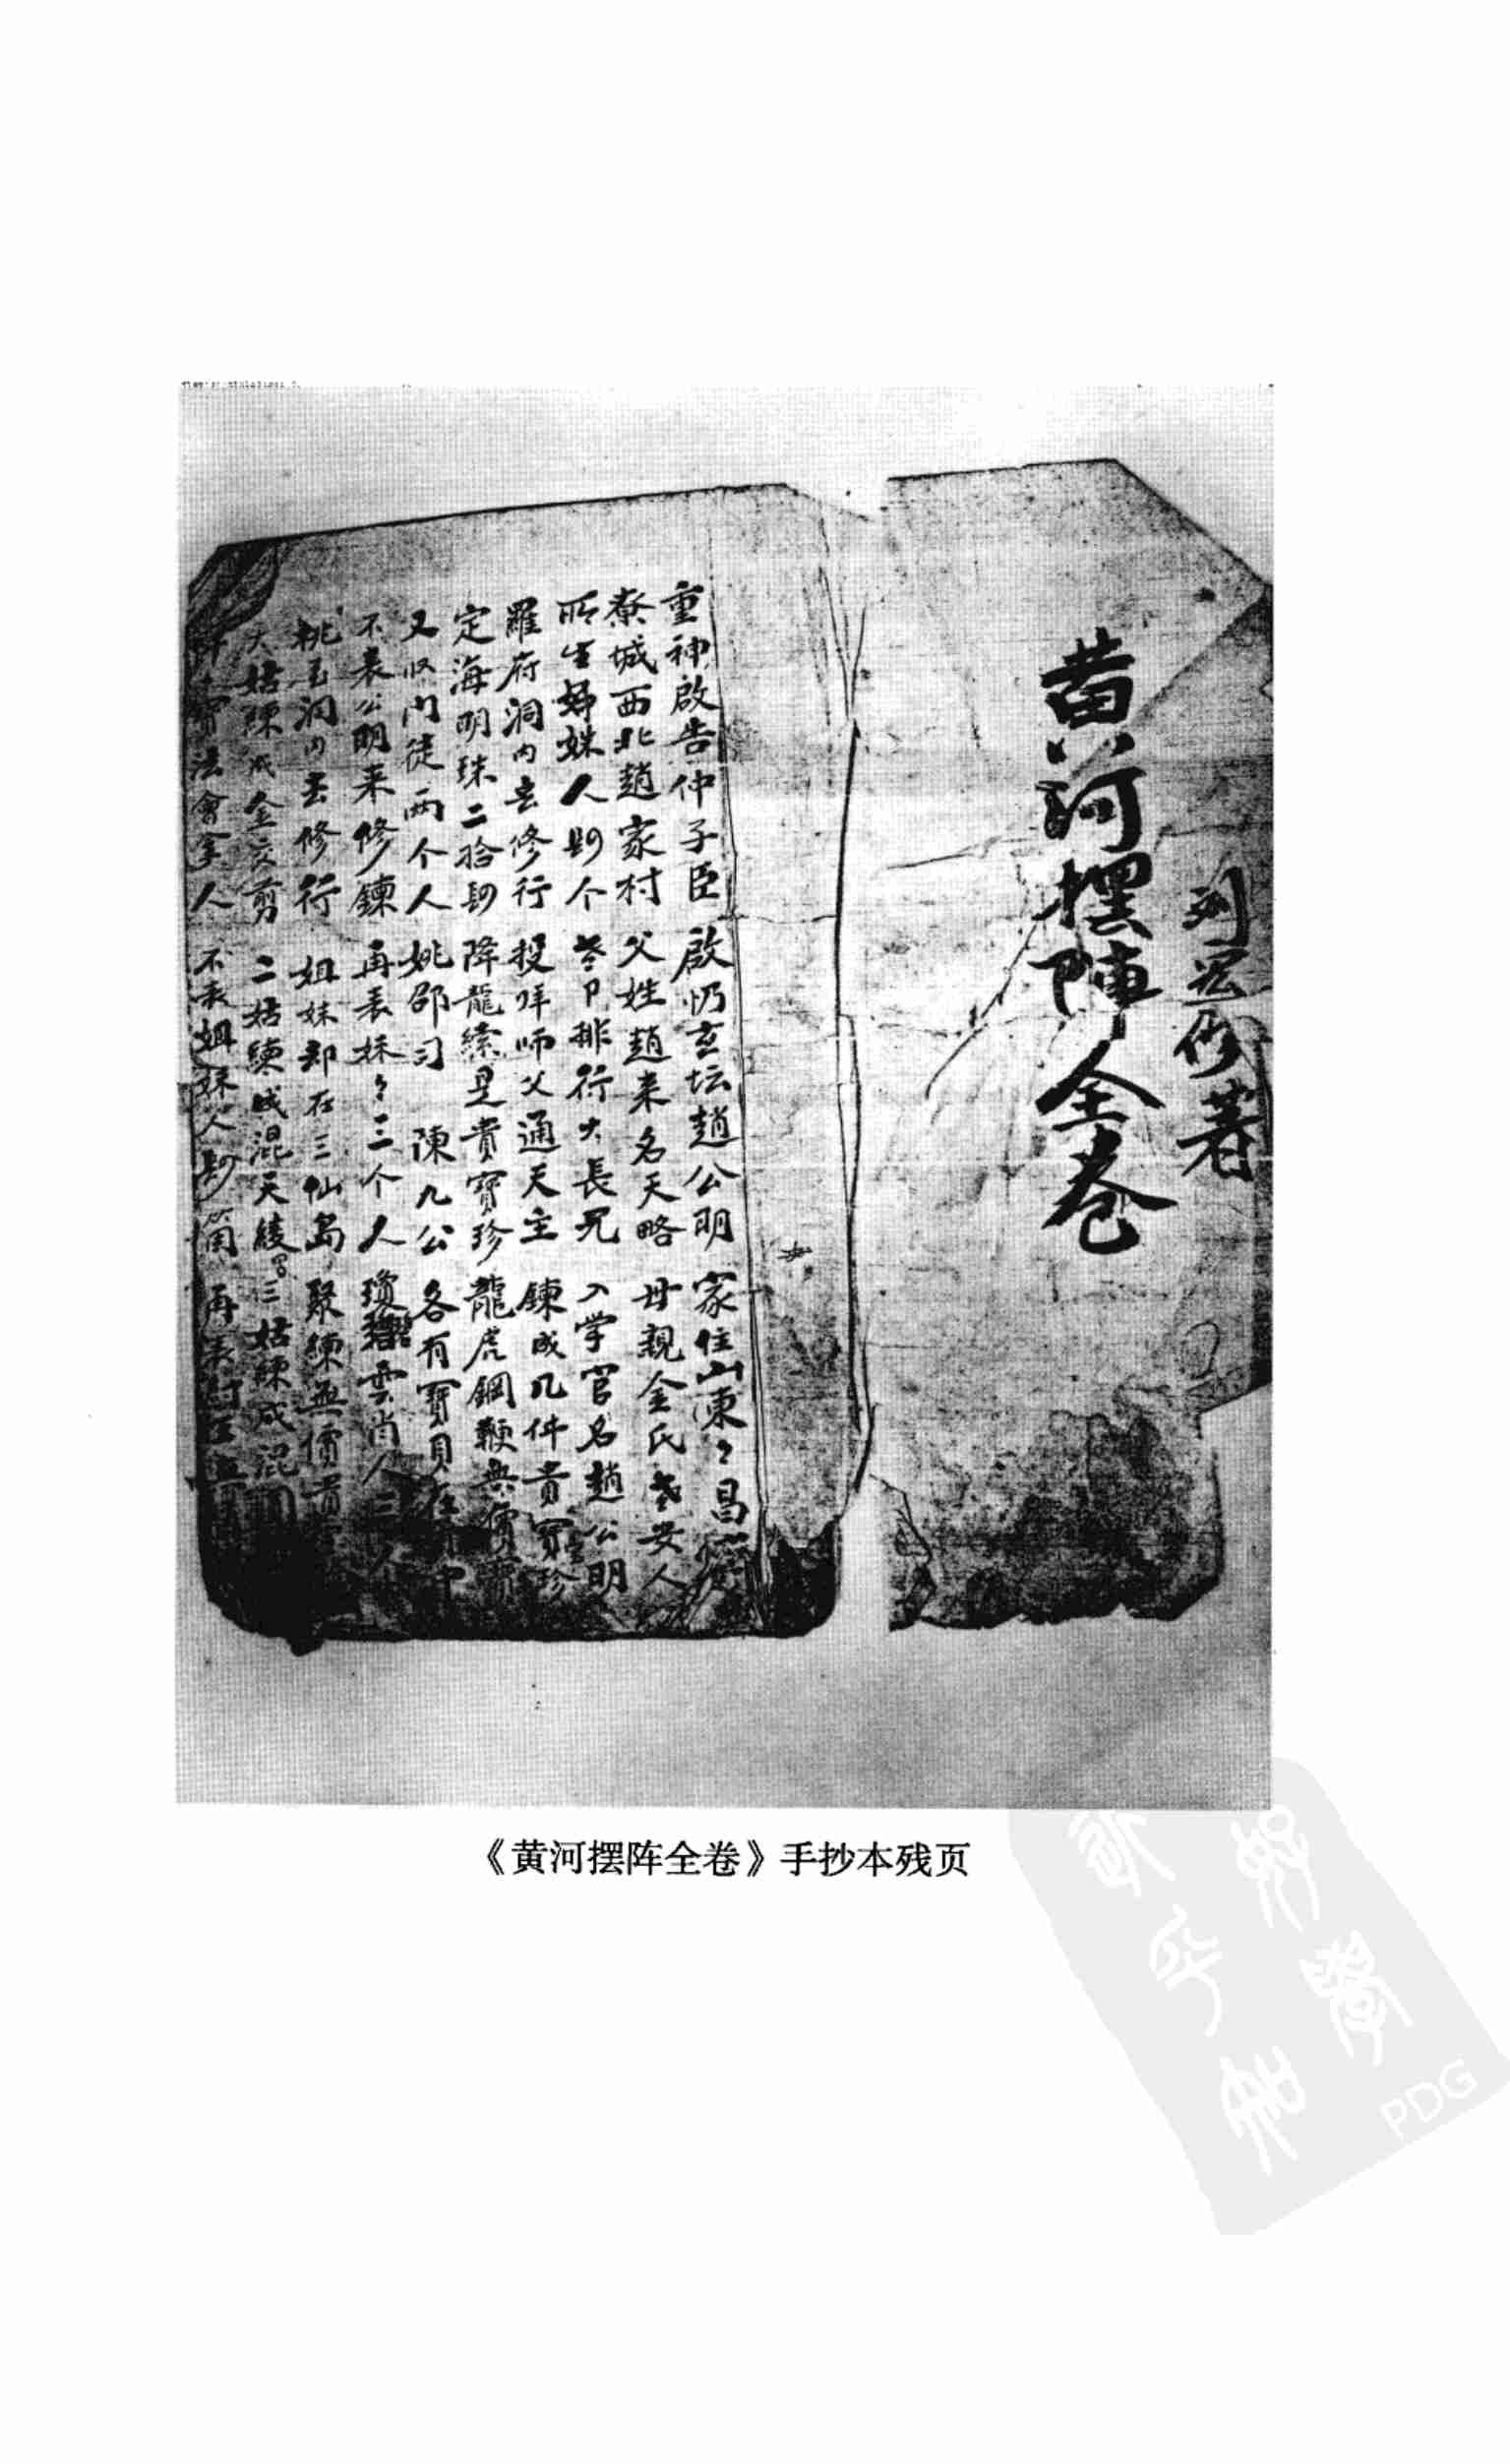 著
黄河摆陣全卷
重神啟告仲子臣 啟 玄坛趙公明 家住山東々昌
城西北趙家村 父姓趙来名天略 母親金氏 安人
所生姊妹人 个 排行大長兄 入学官名趙公明
羅府洞内去修行 投拜师父通天主 鍊成几件貴寳珍
定海明珠二拾 降龍索是貴寳珍 龍虎鋼鞭無價
又收门徒两个人 姚邵司 陳九公 各有寳貝在 中
不表公明来修鍊 再表妹々三个人 瓊碧雲肖人三人
桃毛洞内去修行 姐妹却在三仙岛 聚練無價
大姑練成金交剪 二姑練成混天綾 三姑練成混
寳法會拿人 不表姐妹人 箇 再表
《黄河摆阵全卷》手抄本残页
PDG